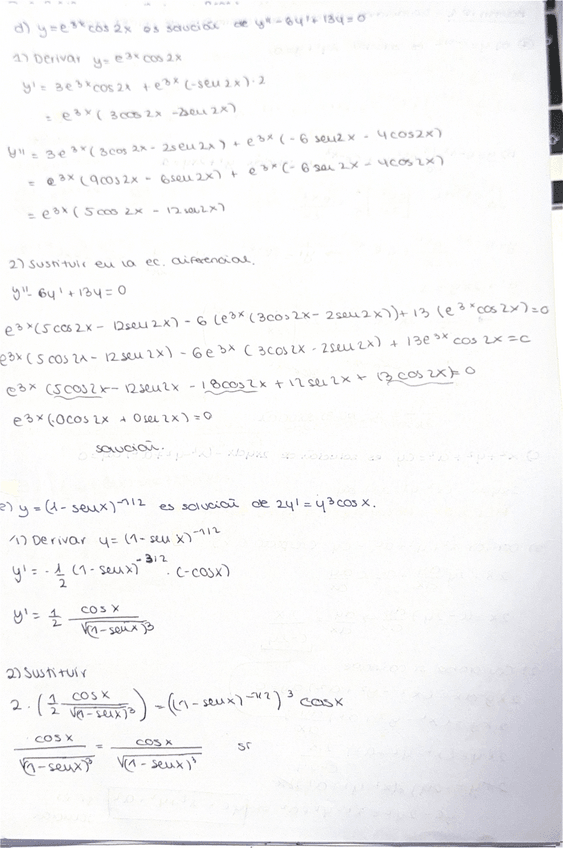 d) y = e^3x cos 2x es solución de y'' - 6y' + 13y = 0
1) Derivar y = e^3x cos 2x
y' = 3e^3x cos 2x + e^3x (-sen 2x) · 2
= e^3x (3cos 2x - 2sen 2x)
y'' = 3e^3x (3cos 2x - 2sen 2x) + e^3x (-6 sen 2x - 4cos 2x)
= e^3x (9cos 2x - 6sen 2x) + e^3x (-6 sen 2x - 4cos 2x)
= e^3x (5cos 2x - 12sen 2x)
2) Sustituir en la ec. diferencial.
y'' - 6y' + 13y = 0
e^3x (5cos 2x - 12sen 2x) - 6 (e^3x (3cos 2x - 2sen 2x)) + 13 (e^3x cos 2x) = 0
e^3x (5cos 2x - 12sen 2x) - 6e^3x (3cos 2x - 2sen 2x) + 13e^3x cos 2x = 0
e^3x (5cos 2x - 12sen 2x - 18cos 2x + 12sen 2x + 13cos 2x) = 0
e^3x (0cos 2x + 0sen 2x) = 0
solución.
e) y = (1 - sen x)^-1/2 es solución de 2y' = y^3 cos x.
1) Derivar y = (1 - sen x)^-1/2
y' = -1/2 (1 - sen x)^-3/2 · (-cos x)
y' = 1/2 cos x / √(1 - sen x)^3
2) Sustituir
2 · (1/2 cos x / √(1 - sen x)^3) = ((1 - sen x)^-1/2)^3 cos x
cos x / √(1 - sen x)^3 = cos x / √(1 - sen x)^3 sí